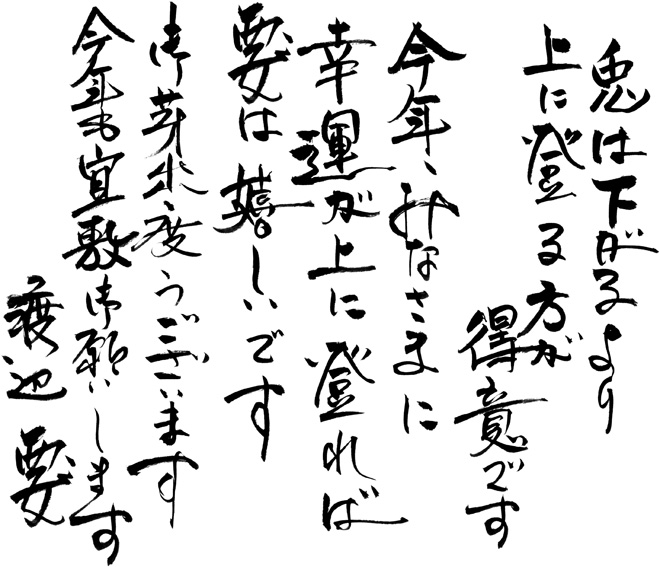 兎は下がるより
上に登る方が
得意です
今年、みなさまに
幸運が上に登れば
要は嬉しいです
御芽出度うございます
今年も宜敷御願いします
渡辺 要